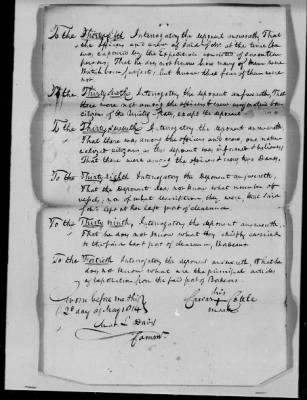 To the Thirty fifth Interrogatory the deponent answereth, That
the officers and crew of said
was captured by the Expedition consisted of seventeen
persons; That he does not know how many of them were
British born subjects, but knows that four of them were
not.
To the Thirty sixth Interrogatory the deponent answereth, That
there were not among the officers & crew any native born
citizen of the United States, except the deponent
To the Thirty seventh Interrogatory the deponent answereth
That there was among the officers and crew, one natu-
ralized citizen as this deponent was informed & believes
That there were among the officers & crew two Danes,
To the Thirty eighth Interrogatory the Deponent answereth,
That the Deponent does not know what number of
vessels, nor of what description they were, that laid
at her last port of clearance
To the Thirty ninth, Interrogatory the deponent answereth,
That he does not know what they chiefly carried
in their last port of clearance,
To the Fortieth Interrogatory the deponent answereth that he
does not know what are the principal articles
of exportation from the said port of
Sworn before me this
2d day of May 1814
his
Caesar + Cottle
mark
Davis
Comr.